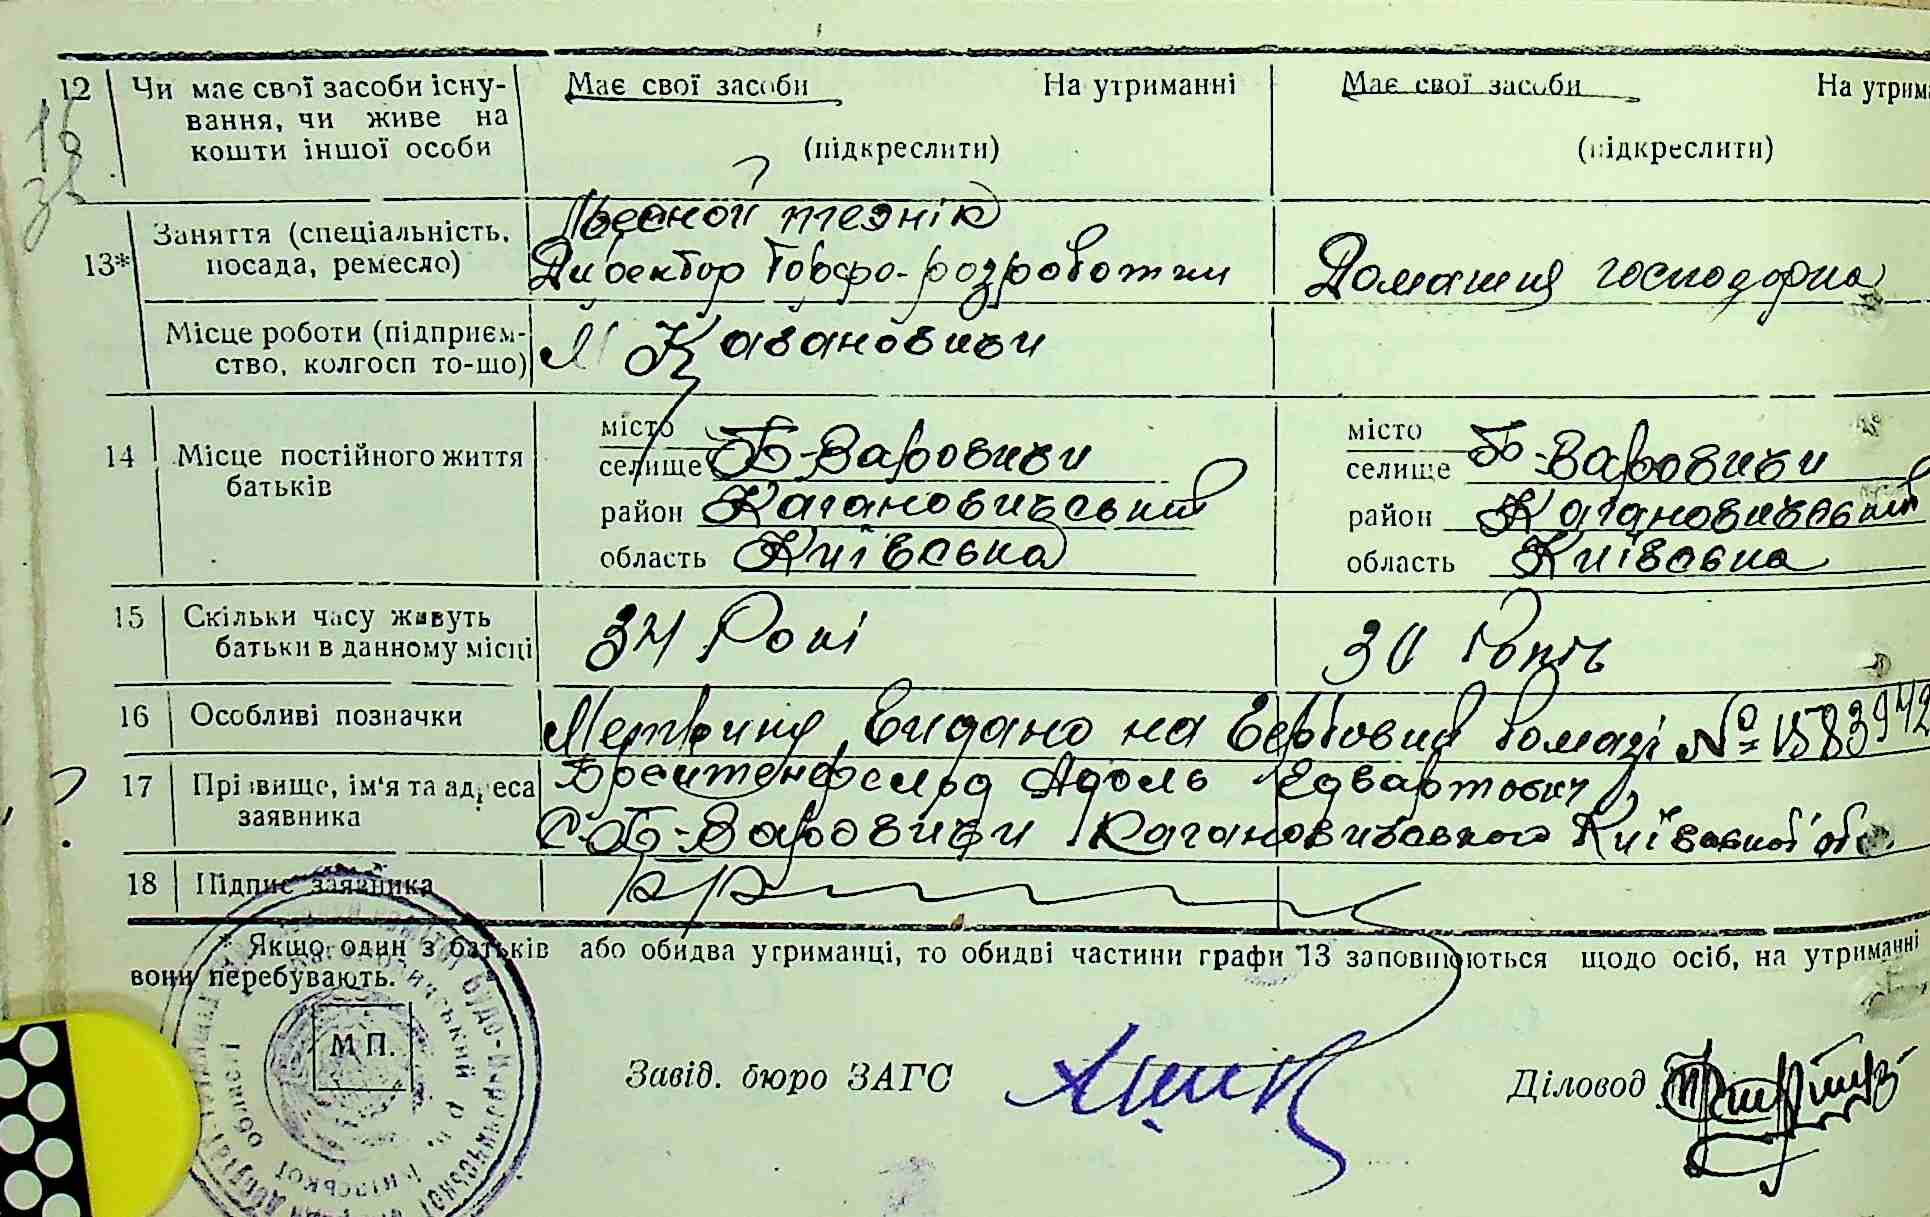 12 Чи має свої засоби існу- Має свої засоби На утриманні Має свої засоби На утрим
вання, чи живе на
кошти іншої особи (підкреслити) (підкреслити)
Лєсной технік
13* Заняття (спеціальність, Директор Торфо-розроботки Домашня господорка
посада, ремесло)
Місце роботи (підприєм- М Кагановичи
ство, колгосп то-що)
14 Місце постійного життя
батьків
місто
селище Б-Варовичи
район Кагановичський
область Київська
місто
селище Б-Варовичи
район Кагановичський
область Київська
15 Скільки часу живуть 34 Рокі 30
батьки в данному місці
16 Особливі позначки Метрику Видано на Гербовий Бомазі № 1583942
17 Прізвище, ім'я та адреса Брейтенфельд Адоль Едвартович
заявника С. Б-Варовичи Кагановичського Київської об
18 Підпис заявника
* Якщо один з батьків або обидва утриманці, то обидві частини графи 13 заповнюються щодо осіб, на утриманні
вони перебувають.
М П.
Завід. бюро ЗАГС Діловод